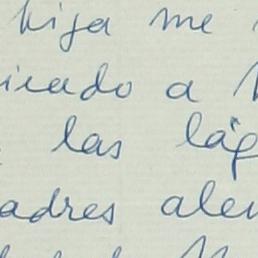 hija me
icado a
las lág
adres alem